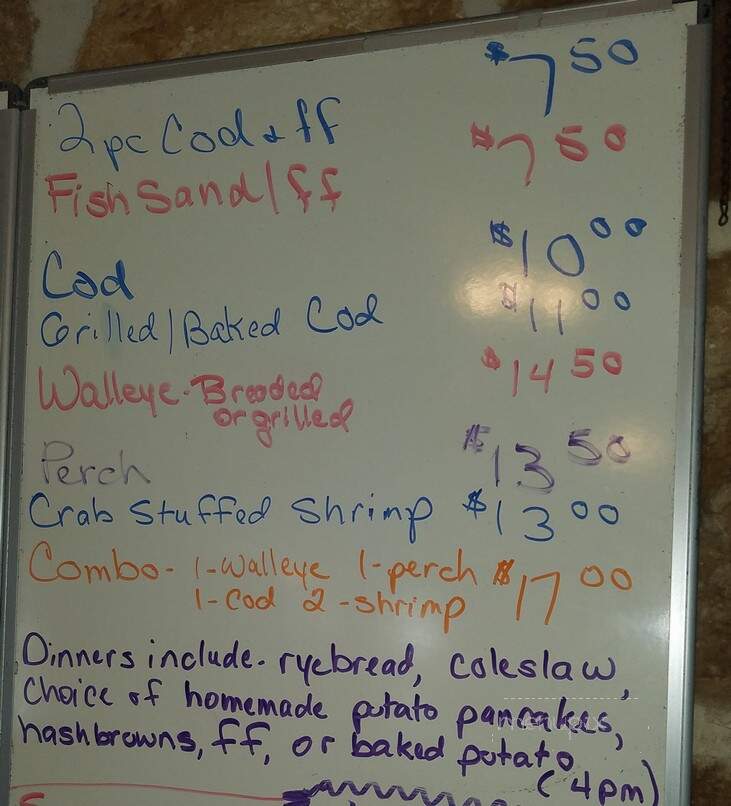 2pc Cod & ff $7 50
Fish Sand/ff $7 50
Cod $10 00
Grilled/Baked Cod $11 00
Walleye-Breaded $14 50
or grilled
Perch $13 50
Crab Stuffed Shrimp $13 00
Combo- 1-walleye 1-perch $17 00
1-Cod 2-shrimp
Dinners include- ryebread, coleslaw,
Choice of homemade potato pancakes,
hashbrowns, ff, or baked potato
(4pm)
menupix